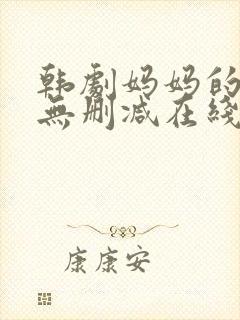 韩劇妈妈的
無删减在綫
康康安